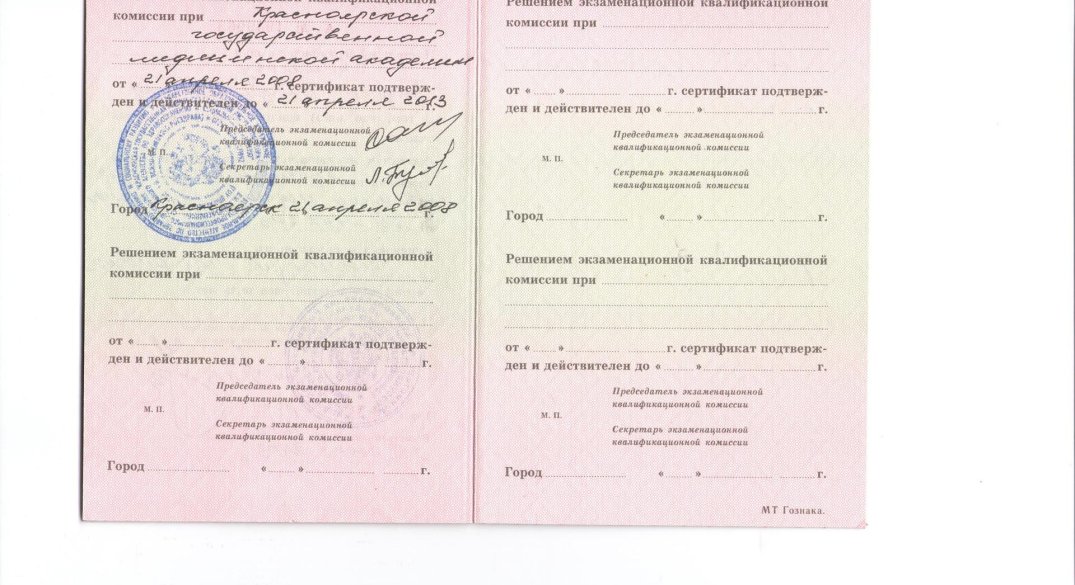 комиссии при Красноярской
государственной
медицинской академии
от « 21 апреля 2008 г. сертификат подтверж-
ден и действителен до « 21 апреля 2013
Председатель экзаменационной
квалификационной комиссии
М. П.
Секретарь экзаменационной
квалификационной комиссии
Город Красноярск 21 апреля 2008 г.
Решением экзаменационной квалификационной
комиссии при
от « » г. сертификат подтверж-
ден и действителен до « » г.
Председатель экзаменационной
квалификационной комиссии
М. П.
Секретарь экзаменационной
квалификационной комиссии
Город « » г.
Решением экзаменационной квалификационной
комиссии при
от « » г. сертификат подтверж-
ден и действителен до « » г.
Председатель экзаменационной
квалификационной комиссии
М. П.
Секретарь экзаменационной
квалификационной комиссии
Город « » г.
Решением экзаменационной квалификационной
комиссии при
от « » г. сертификат подтверж-
ден и действителен до « » г.
Председатель экзаменационной
квалификационной комиссии
М. П.
Секретарь экзаменационной
квалификационной комиссии
Город « » г.
МТ Гознака.